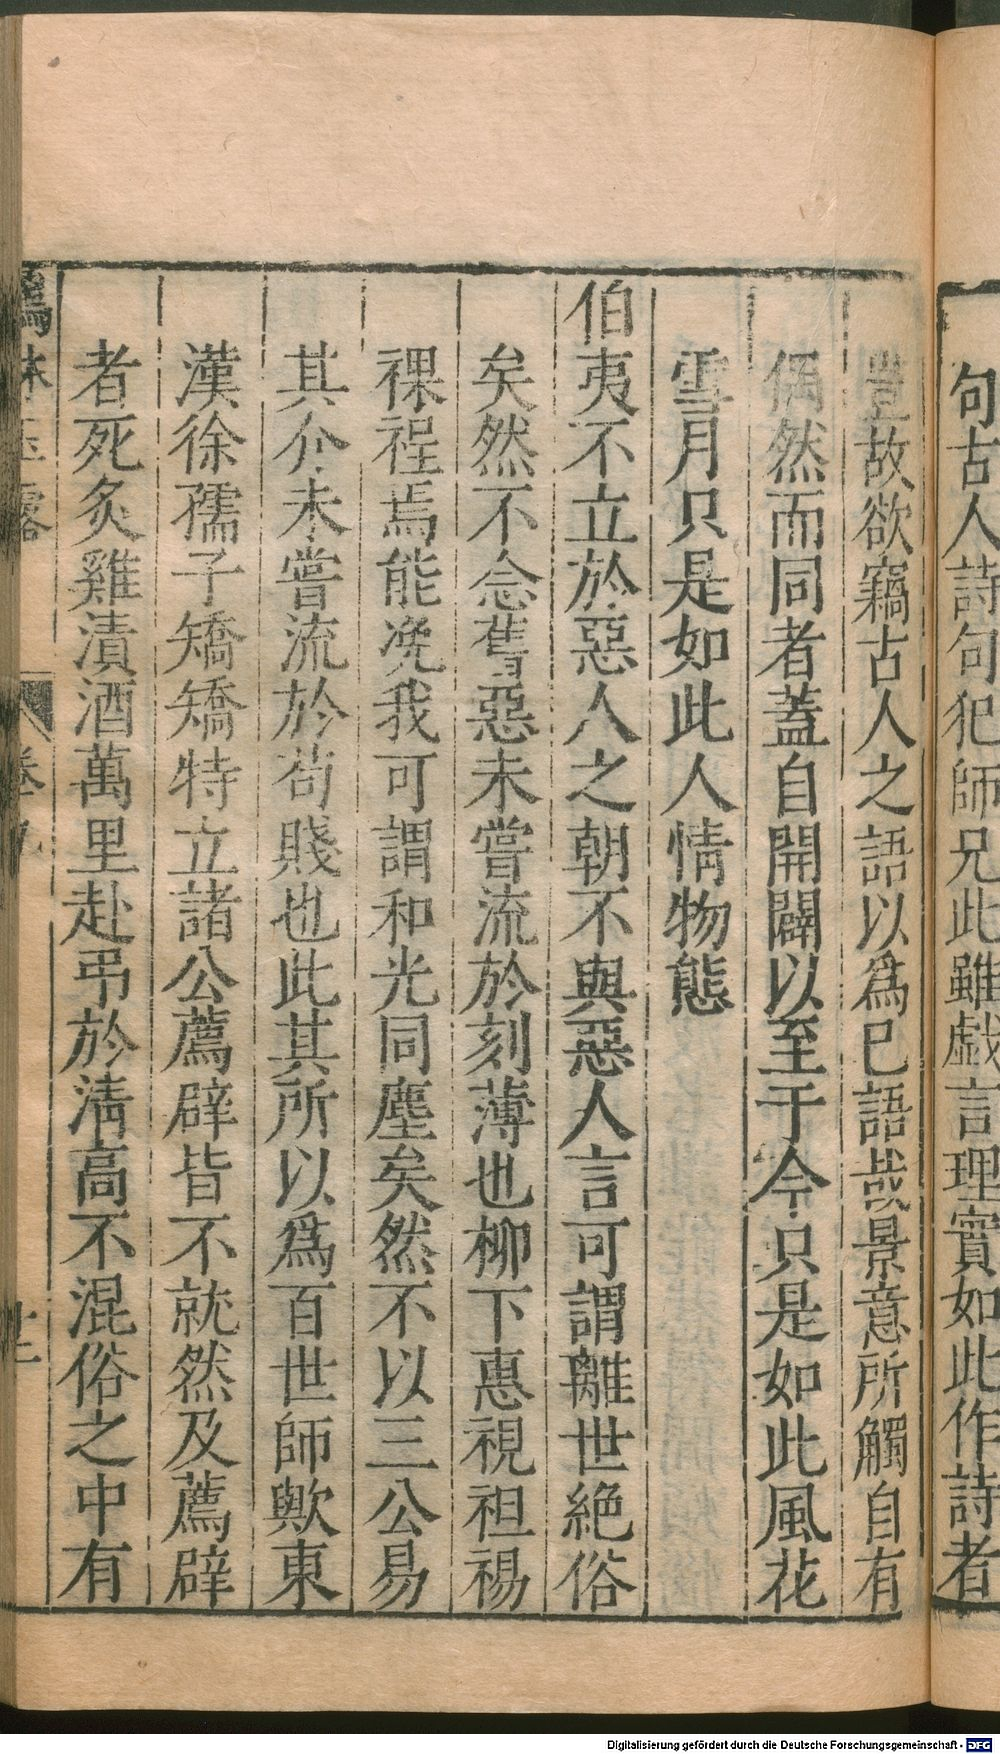 句古人詩句犯師兄此雖戯言理實如此作詩者
豈故欲竊古人之語以爲己語哉景意所觸自有
偶然而同者蓋自開闢以至于今只是如此風花
雪月只是如此人情物態
伯夷不立於惡人之朝不與惡人言可謂離世絶俗
矣然不念舊惡未嘗流於刻薄也柳下惠視袒裼
裸裎焉能浼我可謂和光同塵矣然不以三公易
其介未嘗流於苟賤也此其所以爲百世師歟東
漢徐孺子矯矯特立諸公薦辟皆不就然及薦辟
者死炙雞漬酒萬里赴弔於清高不混俗之中有
鶴林玉露
卷九
Digitalisierung gefördert durch die Deutsche Forschungsgemeinschaft - DFG